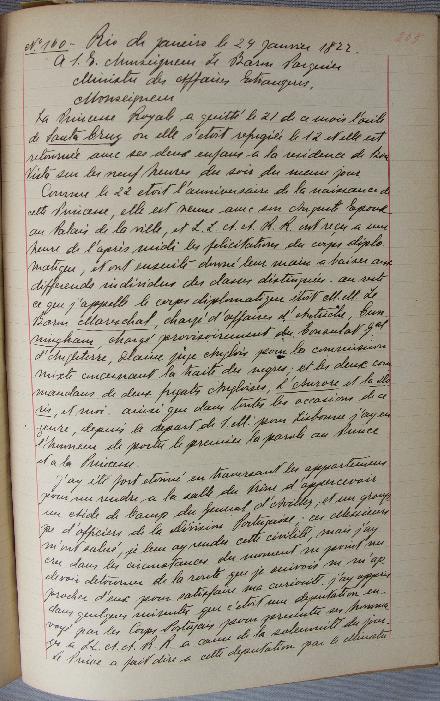 205
No 160 - Rio de janeiro le 24 Janvier 1822
A S. E. Monseigneur Le Baron Pasquier
Ministre des Affaires Etrangeres,
Monseigneur
La Princesse Royale a quitté le 21 de ce mois l'asile
de Santa Cruz ou elle s'étoit refugiée le 12 et elle est
retournée avec ses deux enfans a la residence de Boa
Vista sur les neuf heures du soir du meme jour
Comme le 22 etoit l'anniversaire de la naissance de
cette Princesse, elle est venue avec son Auguste Epoux
au Palais de la ville, et L.L. A. A. R. R. ont reçu a une
heure de l'après midi les felicitations du corps diplo-
matique, et ont ensuite donné leur mains a baiser aux
differends individus des classes distinguées. au reste
ce que j'appelle le corps diplomatique etoit M.M. Le
Baron Mareschal, chargé d'affaires d'Autriche, Cun
ningham, chargé provisoirement du Consulat gal
d'Angleterre, juge Anglois pour la commission
mixte concernant la traite des negres; et les deux com
mandans de deux frigates Angloises, L'Aurore et la Do
ris, et moi. ainsi que dans toutes les occasions de ce
genre, depuis le depart de S. M. pour Lisbonne j'ay eu
l'honneur de porter le premier la parole au Prince
et a la Princesse.
j'ay été fort etonné en traversant les appartemens
pour me rendre a la salle du trône d'appercevoir
un aide de Camp du general d'Avilez, et un group
pe d'officiers de la division Portugaise; ces Messieurs
m'ont salué, je leur ay rendu cette civilité, mais j'ay
cru dans les circonstances du moment ne point me
devoir detourner de la route que je suivois ni m'ap-
procher d'eux pour satisfaire ma curiosité. j'ay appris
dans quelques minutes que c'etoit une deputation en-
voyé par les Corps Portugais pour presenter ses homma
ges a L.L. A. A. R. R. a cause de la solemnité du jour
le Prince a fait dire a cette deputation par le Ministre